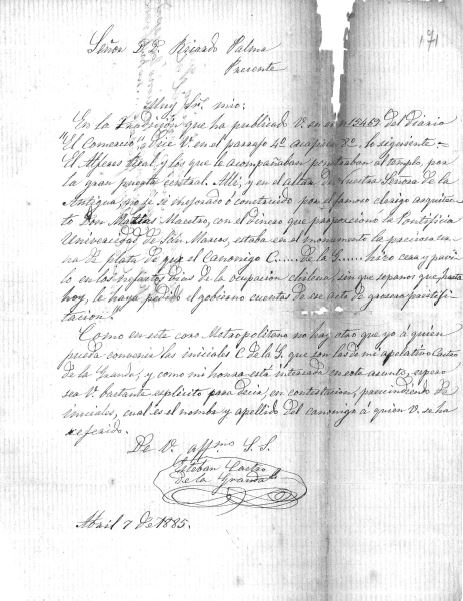 171
Señor D. D. Ricardo Palma
Presente
Muy Sr. mio:
En la Tradición que ha publicado V. en el nº 15462 del Diario
"El Comercio", dice V. en el parrafo 4º acapite 82, lo siguiente =
El Alferes Real y los que le acompañaban penetraban al templo, por
la gran puerta central. Allí, y en el altar de Nuestra Señora de la
Antigua, no se si mejorado ó construido por el famoso clerigo arquitec-
to Don Matias Maestro, con el dinero que proporcionó la Pontificia
Universidad de San Marcos, estaba en el monumento la preciosa cu-
ña de plata de que el canonigo C..... de la G..... hizo cera y pavi-
lo en los infaustos dias de la ocupacion chilena, sin que sepamos que hasta
hoy, le haya pedido el gobierno cuentas de ese acto de grosera
Como en este coro Metropolitano no hay otro que yo á quien
pueda convenir las iniciales C. de la G. que son las de mi apelativo Castro
de la Granda, y como mi honra está interesada en este asunto, espero
sea V. bastante esplicito para decir, en contestacion, prescindiendo de
iniciales, cual es el nombre y apellido del canonigo á quien V. se ha
referido.
De V. affmo. S. S.
Esteban Castro
de la Granda
Abril 7 de 1885.